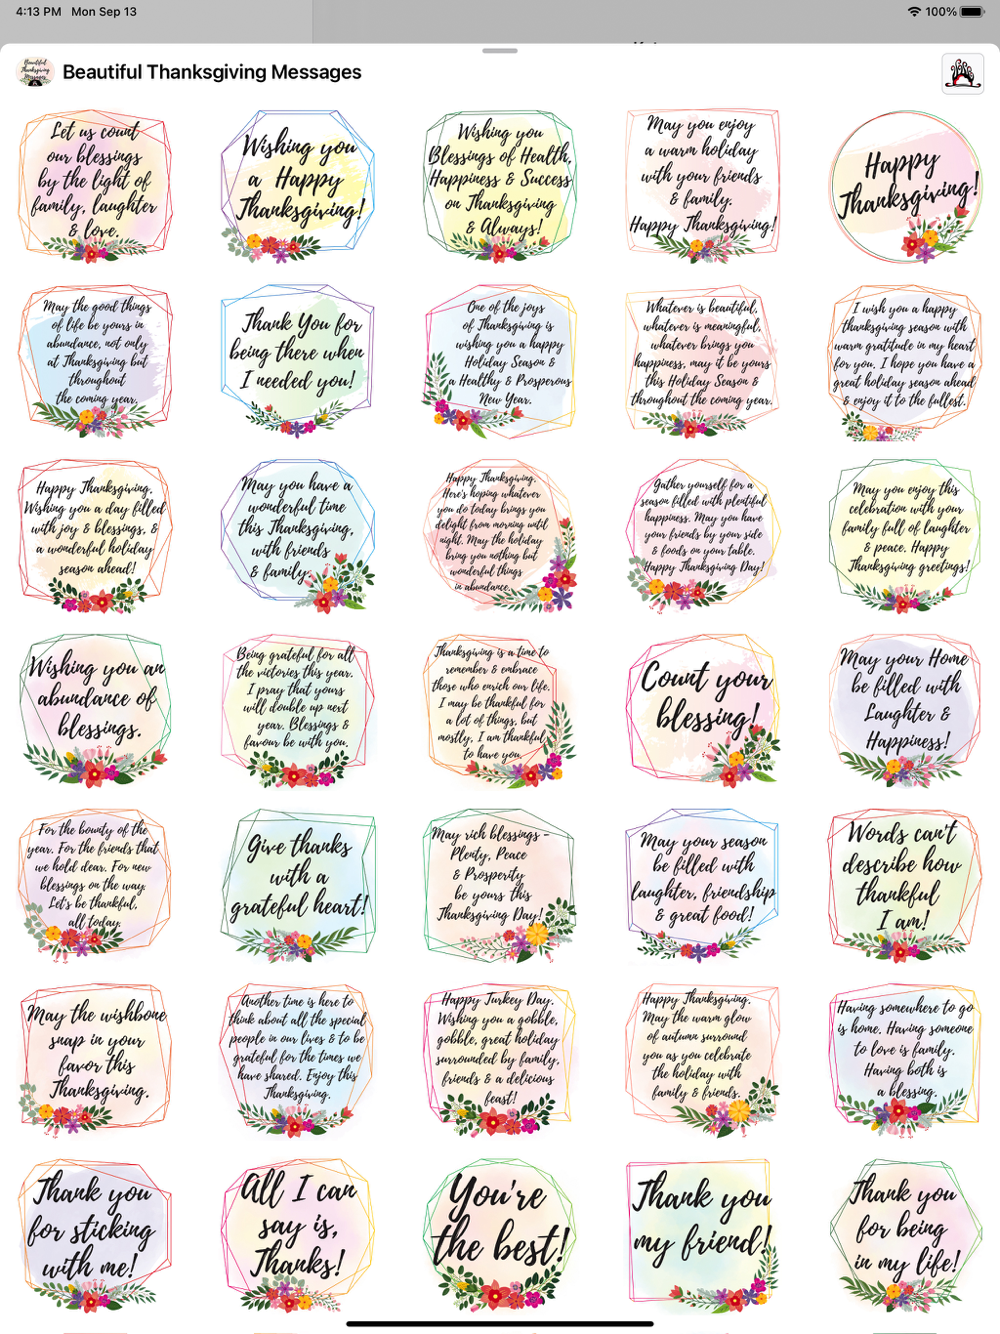 4:13 PM Mon Sep 13
100%
Beautiful Thanksgiving Messages
Let us count
our blessings
by the light of
family, laughter
& love.
Wishing you
a Happy
Thanksgiving!
Wishing you
Blessings of Health,
Happiness & Success
on Thanksgiving
& Always!
May you enjoy
a warm holiday
with your friends
& family.
Happy Thanksgiving!
Happy
Thanksgiving!
May the good things
of life be yours in
abundance, not only
at Thanksgiving but
throughout
the coming year.
Thank You for
being there when
I needed you!
One of the joys
of Thanksgiving is
wishing you a happy
Holiday Season &
a Healthy & Prosperous
New Year.
Whatever is beautiful,
whatever is meaningful,
whatever brings you
happiness, may it be yours
this Holiday Season &
throughout the coming year.
I wish you a happy
thanksgiving season with
warm gratitude in my heart
for you. I hope you have a
great holiday season ahead
& enjoy it to the fullest.
Happy Thanksgiving.
Wishing you a day filled
with joy & blessings, &
a wonderful holiday
season ahead!
May you have a
wonderful time
this Thanksgiving,
with friends
& family.
Happy Thanksgiving.
Here's hoping whatever
you do today brings you
delight from morning until
night. May the holiday
bring you nothing but
wonderful things
in abundance.
Gather yourself for a
season filled with plentiful
happiness. May you have
your friends by your side
& foods on your table.
Happy Thanksgiving Day!
May you enjoy this
celebration with your
family full of laughter
& peace. Happy
Thanksgiving greetings!
Wishing you an
abundance of
blessings.
Being grateful for all
the victories this year.
I pray that yours
will double up next
year. Blessings &
favour be with you.
Thanksgiving is a time to
remember & embrace
those who enrich our life.
I may be thankful for
a lot of things, but
mostly, I am thankful
to have you.
Count your
blessing!
May your Home
be filled with
Laughter &
Happiness!
For the bounty of the
year. For the friends that
we hold dear. For new
blessings on the way.
Let's be thankful,
all today.
Give thanks
with a
grateful heart!
May rich blessings -
Plenty, Peace
& Prosperity
be yours this
Thanksgiving Day!
May your season
be filled with
laughter, friendship
& great food!
Words can't
describe how
thankful
I am!
May the wishbone
snap in your
favor this
Thanksgiving.
Another time is here to
think about all the special
people in our lives & to be
grateful for the times we
have shared. Enjoy this
Thanksgiving.
Happy Turkey Day.
Wishing you a gobble,
gobble, great holiday
surrounded by family,
friends & a delicious
feast!
Happy Thanksgiving.
May the warm glow
of autumn surround
you as you celebrate
the holiday with
family & friends.
Having somewhere to go
is home. Having someone
to love is family.
Having both is
a blessing.
Thank you
for sticking
with me!
All I can
say is,
Thanks!
You're
the best!
Thank you
my friend!
Thank you
for being
in my life!